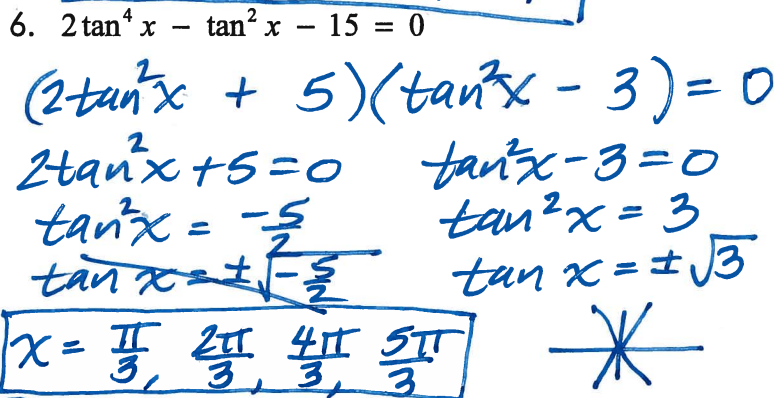 6. 2 tan⁴ x − tan² x − 15 = 0
(2tan²x + 5)(tan²x − 3) = 0
2tan²x + 5 = 0 tan²x − 3 = 0
tan²x = −5/2 tan²x = 3
tan x = ±√−5/2 tan x = ±√3
x = π/3, 2π/3, 4π/3, 5π/3